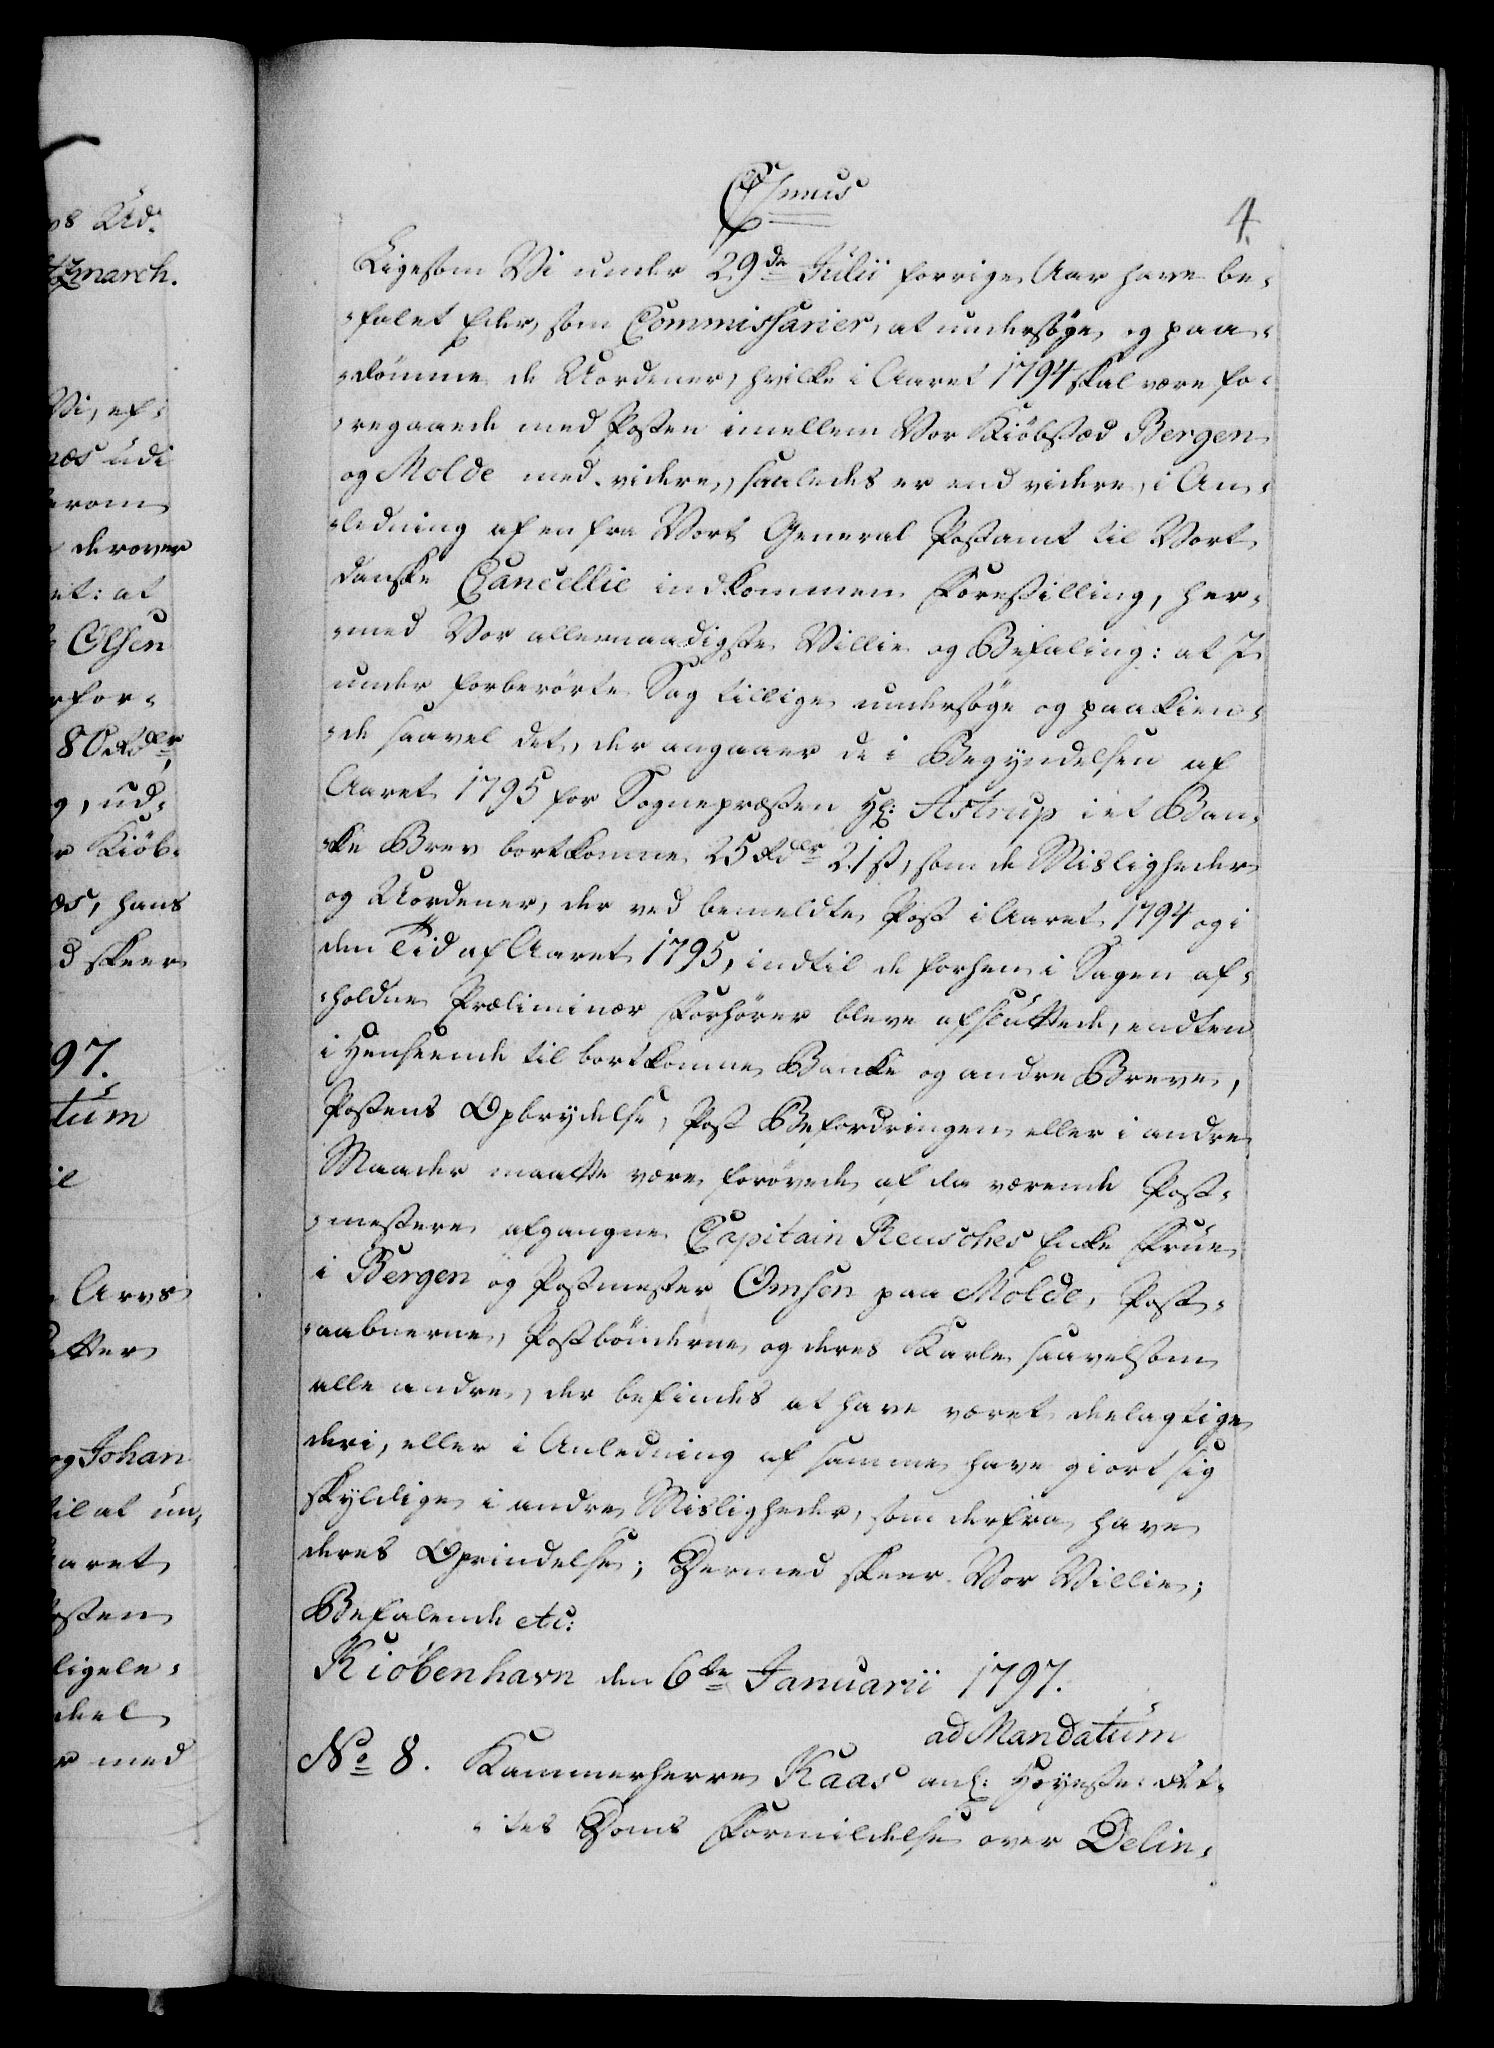 C7mus
4.
Ligesom Vi under 29de Julii forrige Aar have be-
-falet Eder, som Commissarier, at undersøge og paa-
-dömme de Uordener, hvilke i Aaret 1794 skal være fo-
-regaaede med Posten imellem Vor Kiöbstæd Bergen
og Molde med videre, saaledes er end videre, i An-
-ledning af en fra Vort General Postamt til Vort
danske Cancellie indkommen Forestilling, her-
-med Vor allernaadigste Villie og Befaling: at I
under forberörte Sag tillige undersøge og paakien-
-de saavel det, der angaaer de i Begyndelsen af
Aaret 1795 for Sognepræsten Hr: Astrup i et Ban-
-ke Brev bortkomne 25 Rdlr 21 ß, som de Misligheder
og Uordener, der ved bemeldte Post i Aaret 1794 og i
den Tid af Aaret 1795, indtil de forhen i Sagen af-
-holdne Præliminær Forhörer bleve afsluttede, endten
i Henseende til bortkomne Banke og andre Breve,
Postens Opbrydelse, Post Befordringen eller i andre
Maader maatte være forövede af da værende Post-
-mestere afgangne Capitain Reusches Enke Frue
i Bergen og Postmester Omsen paa Molde, Post-
-aabnerne, Postbönderne og deres Karle saavelsom
alle andre, der befindes at have været deelagtige
deri, eller i Anledning af samme have giort sig
skyldige i andre Misligheder, som derfra have
deres Oprindelse; Dermed skeer Vor Villie;
Befalende etc:
Kiöbenhavn den 6te Januarii 1797.
ad Mandatum
No 8. Kammerherre Kaas anl: Höyeste-Ret-
-tes Doms Formildelse over Delin-
ps Ud.
narch.
Vi, ef-
næs udi
erom
derover
et: at
Olsen
rfor-
80 Rdlr,
g, ud-
r Kiöb-
os, hans
d skeer
97.
tum
il
Arvs
atter
og Johan
til at un-
Aaret
osten
ligele-
deel
r med